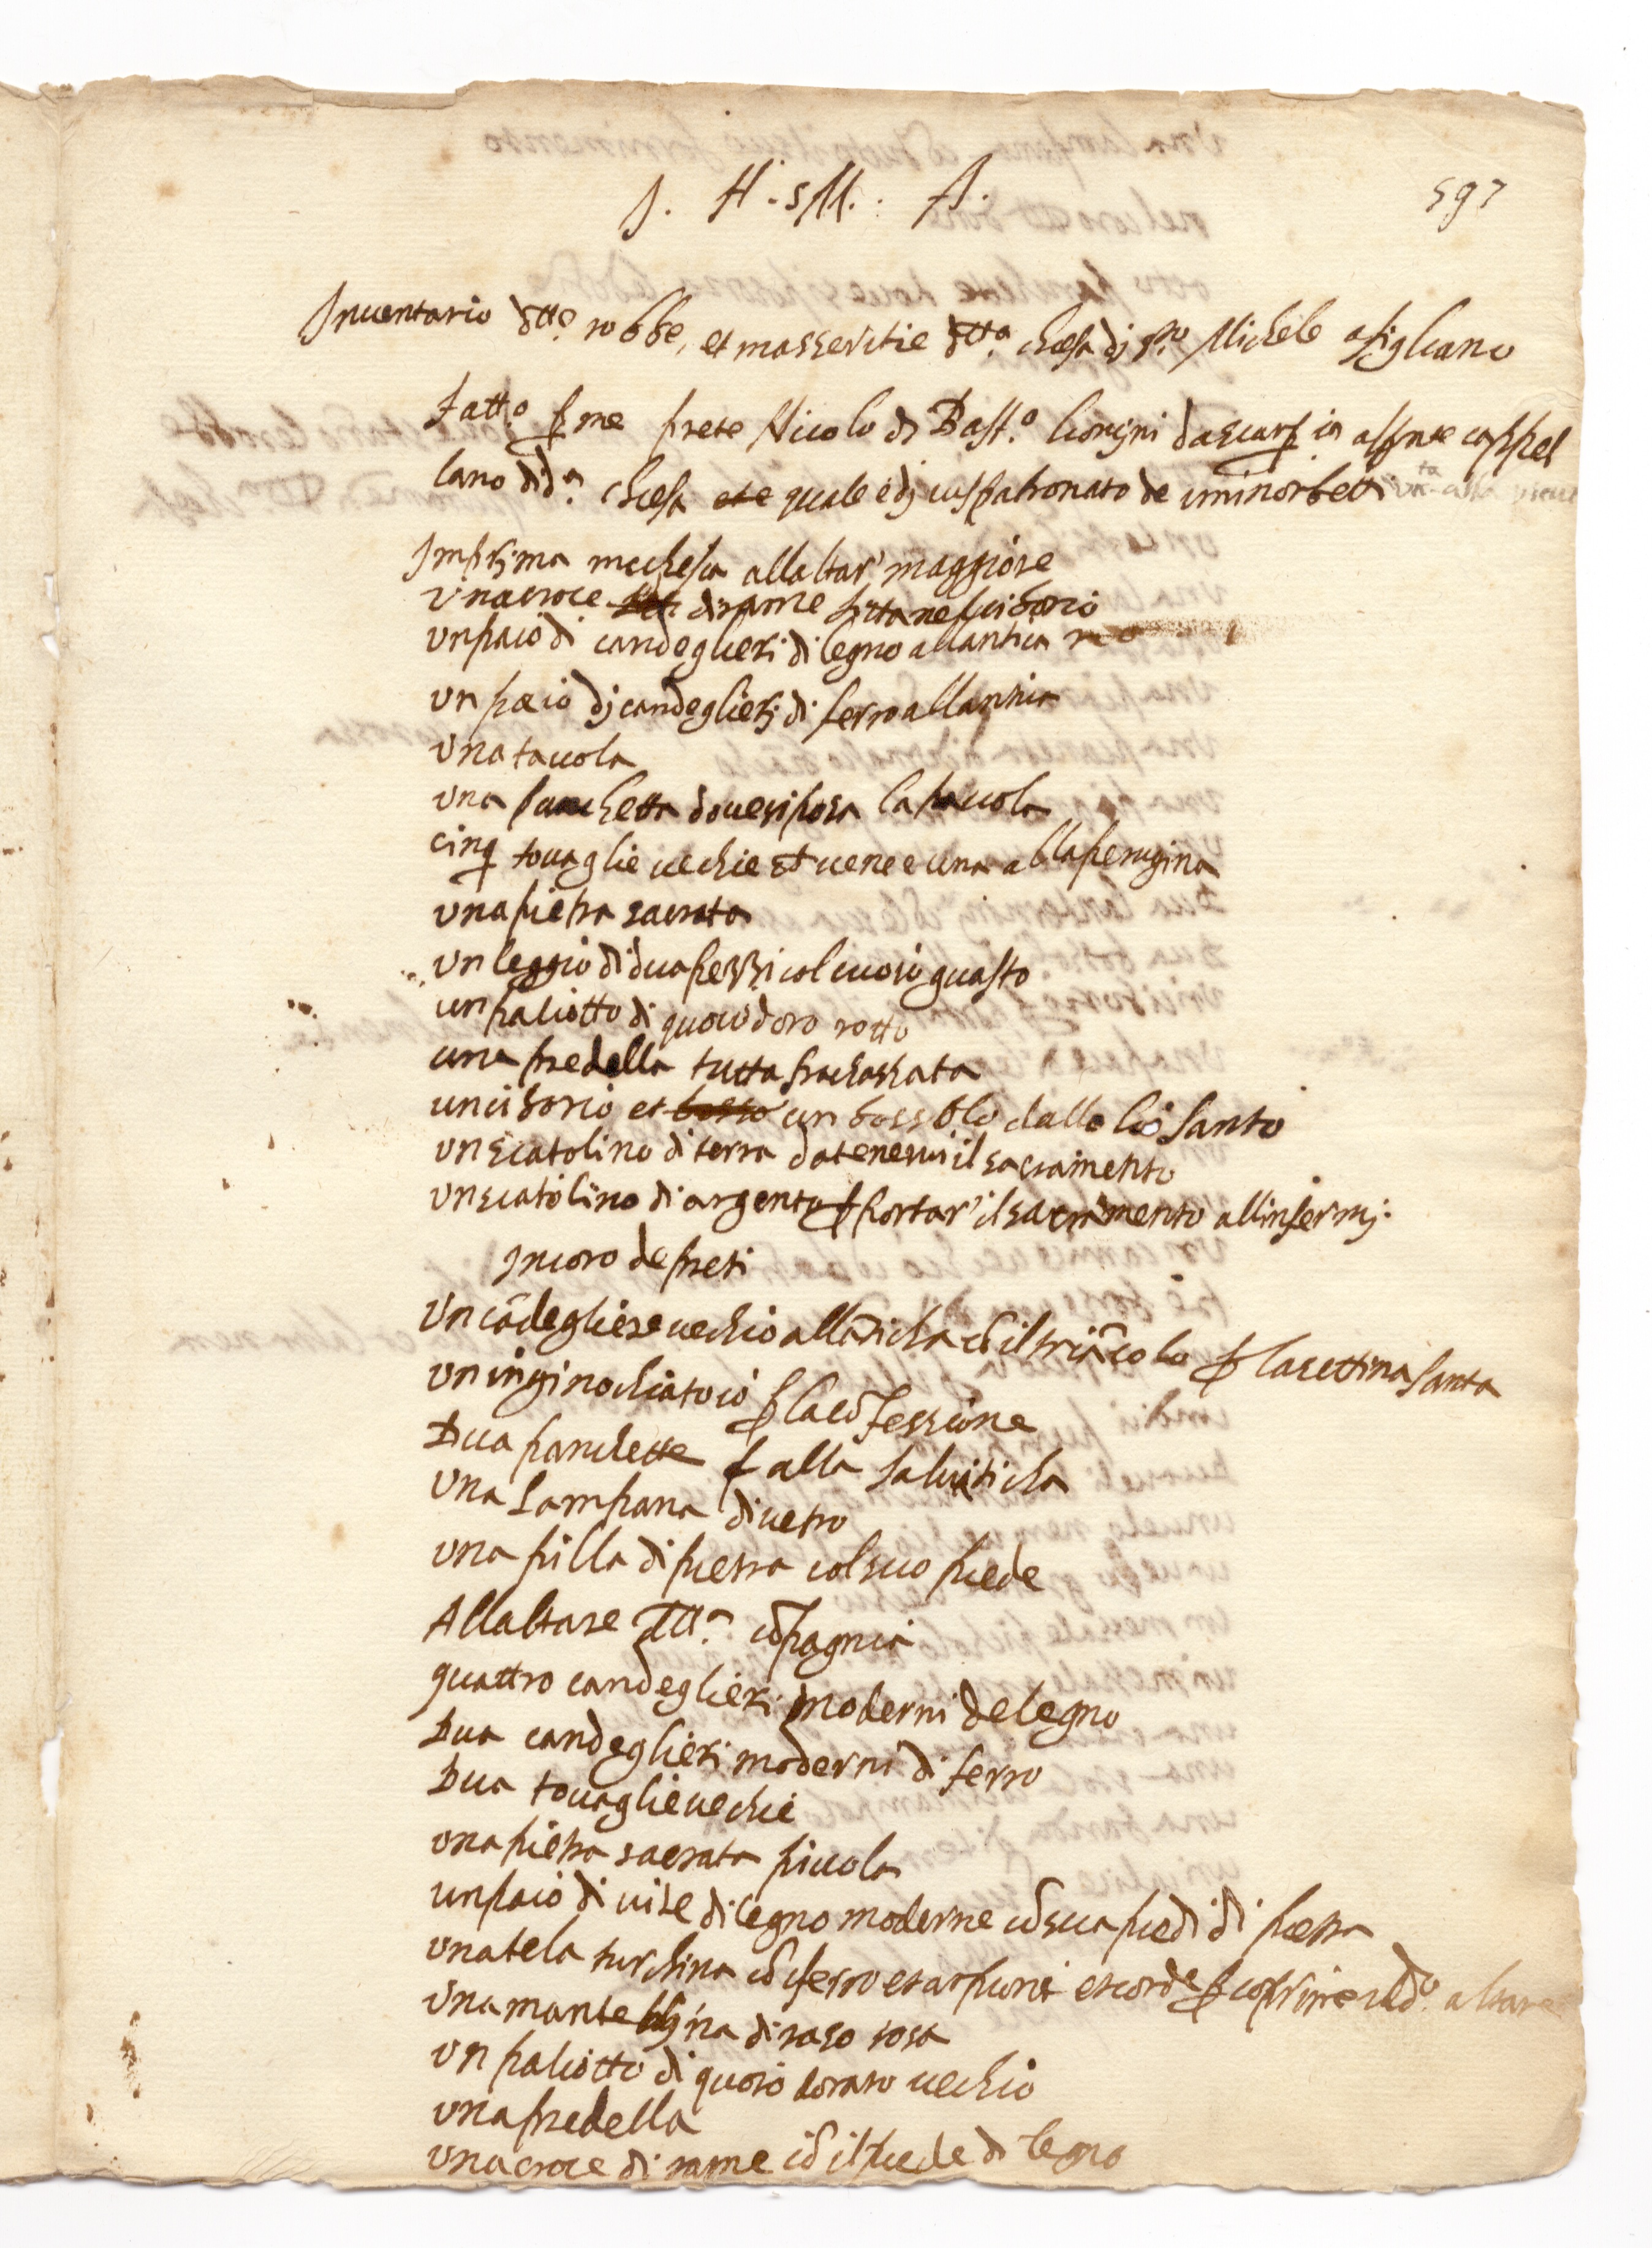 J. H. S M. A.
597
Inventario d.tte robbe, et masseritie d.tta chiesa dj s.to Michele a figliano
fatt.o p me prete Nicolo di Bast.o lionjni da scarp.ia cappel
lano di d.a chiesa quale è dj iuspatronato de minorbetti
Imprjma in chiesa allaltar' maggiore
Una croce di rame fitta nel ciborio
un paio di candeglierj di legno allantica
un paio dj candeglierj di ferro allantica
una tavola
una panchetta dove si posa la tavola
cinq tovaglie vechie et vene e una alla perugina
una pietra sacrata
un leggio di dua pezzi col cuoio guasto
un paliotto di quoio doro rotto
una predella tutta frachashata
un ciborio et bosso un bossolo dallo lio santo
un scatolino di terra da tenervi il sacramento
un scatolino di argento p portar' il sacramento allinfermj.
In coro de preti
Un cãdegliere vechio allãticha cõ il triãcolo p la settina santa
un inginochiatoio p la cõfessione
Dua panchette p alla salviaticha
una lampana di vetro
una pilla di pietra col suo piede
Allaltare d.tta cõpagnia
quattro candeglierj moderni de legno
Dua candeglierj moderni di ferro
Dua tovaglie vechie
una pietra sacrata piccola
un paio di vite di legno moderne cõ sua piedi di pietra
una tela turchina cõ ferro et arpioni et corde p coprire il d.o altare
una mantellina di raso rosa
un paliotto di quoio dorato vechio
una predella
una croce di rame cõ il piede di legno